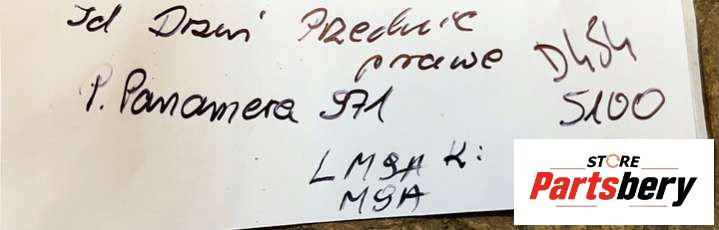 Jd Drzwi Przednie
prawe
D4S4
P. Panamera 971
5100
LM9A K:
M9A
STORE
Partsbery